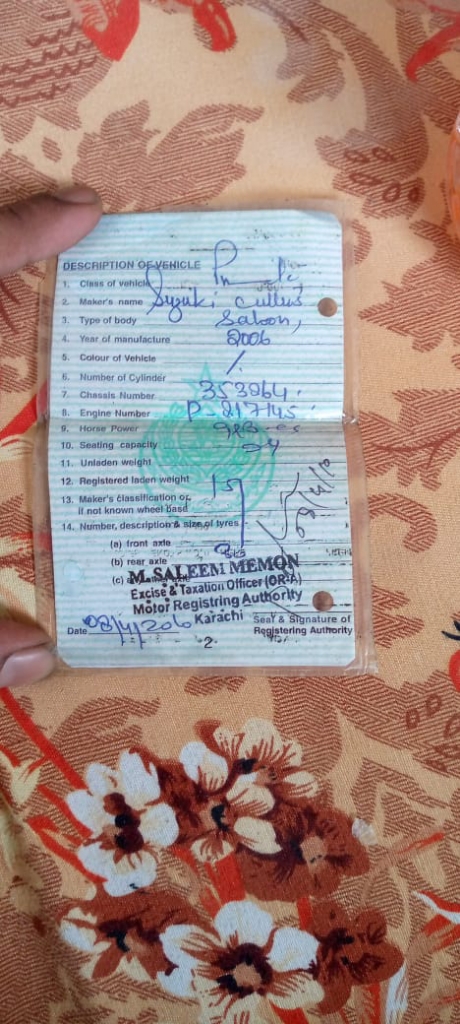 DESCRIPTION OF VEHICLE
1. Class of vehicle
2. Maker's name Suzuki Cultus
3. Type of body Saloon,
4. Year of manufacture 2006
5. Colour of Vehicle
6. Number of Cylinder
7. Chassis Number 353864.
8. Engine Number P-817145
9. Horse Power
10. Seating capacity 04
11. Unladen weight
12. Registered laden weight
13. Maker's classification or
if not known wheel base
14. Number, description & size of tyres
(a) front axle
(b) rear axle
(c)
M. SALEEM MEMON
Excise & Taxation Officer (OR-A)
Motor Registring Authority
Karachi
Date 08/4/206
Seal & Signature of
Registering Authority
-2-